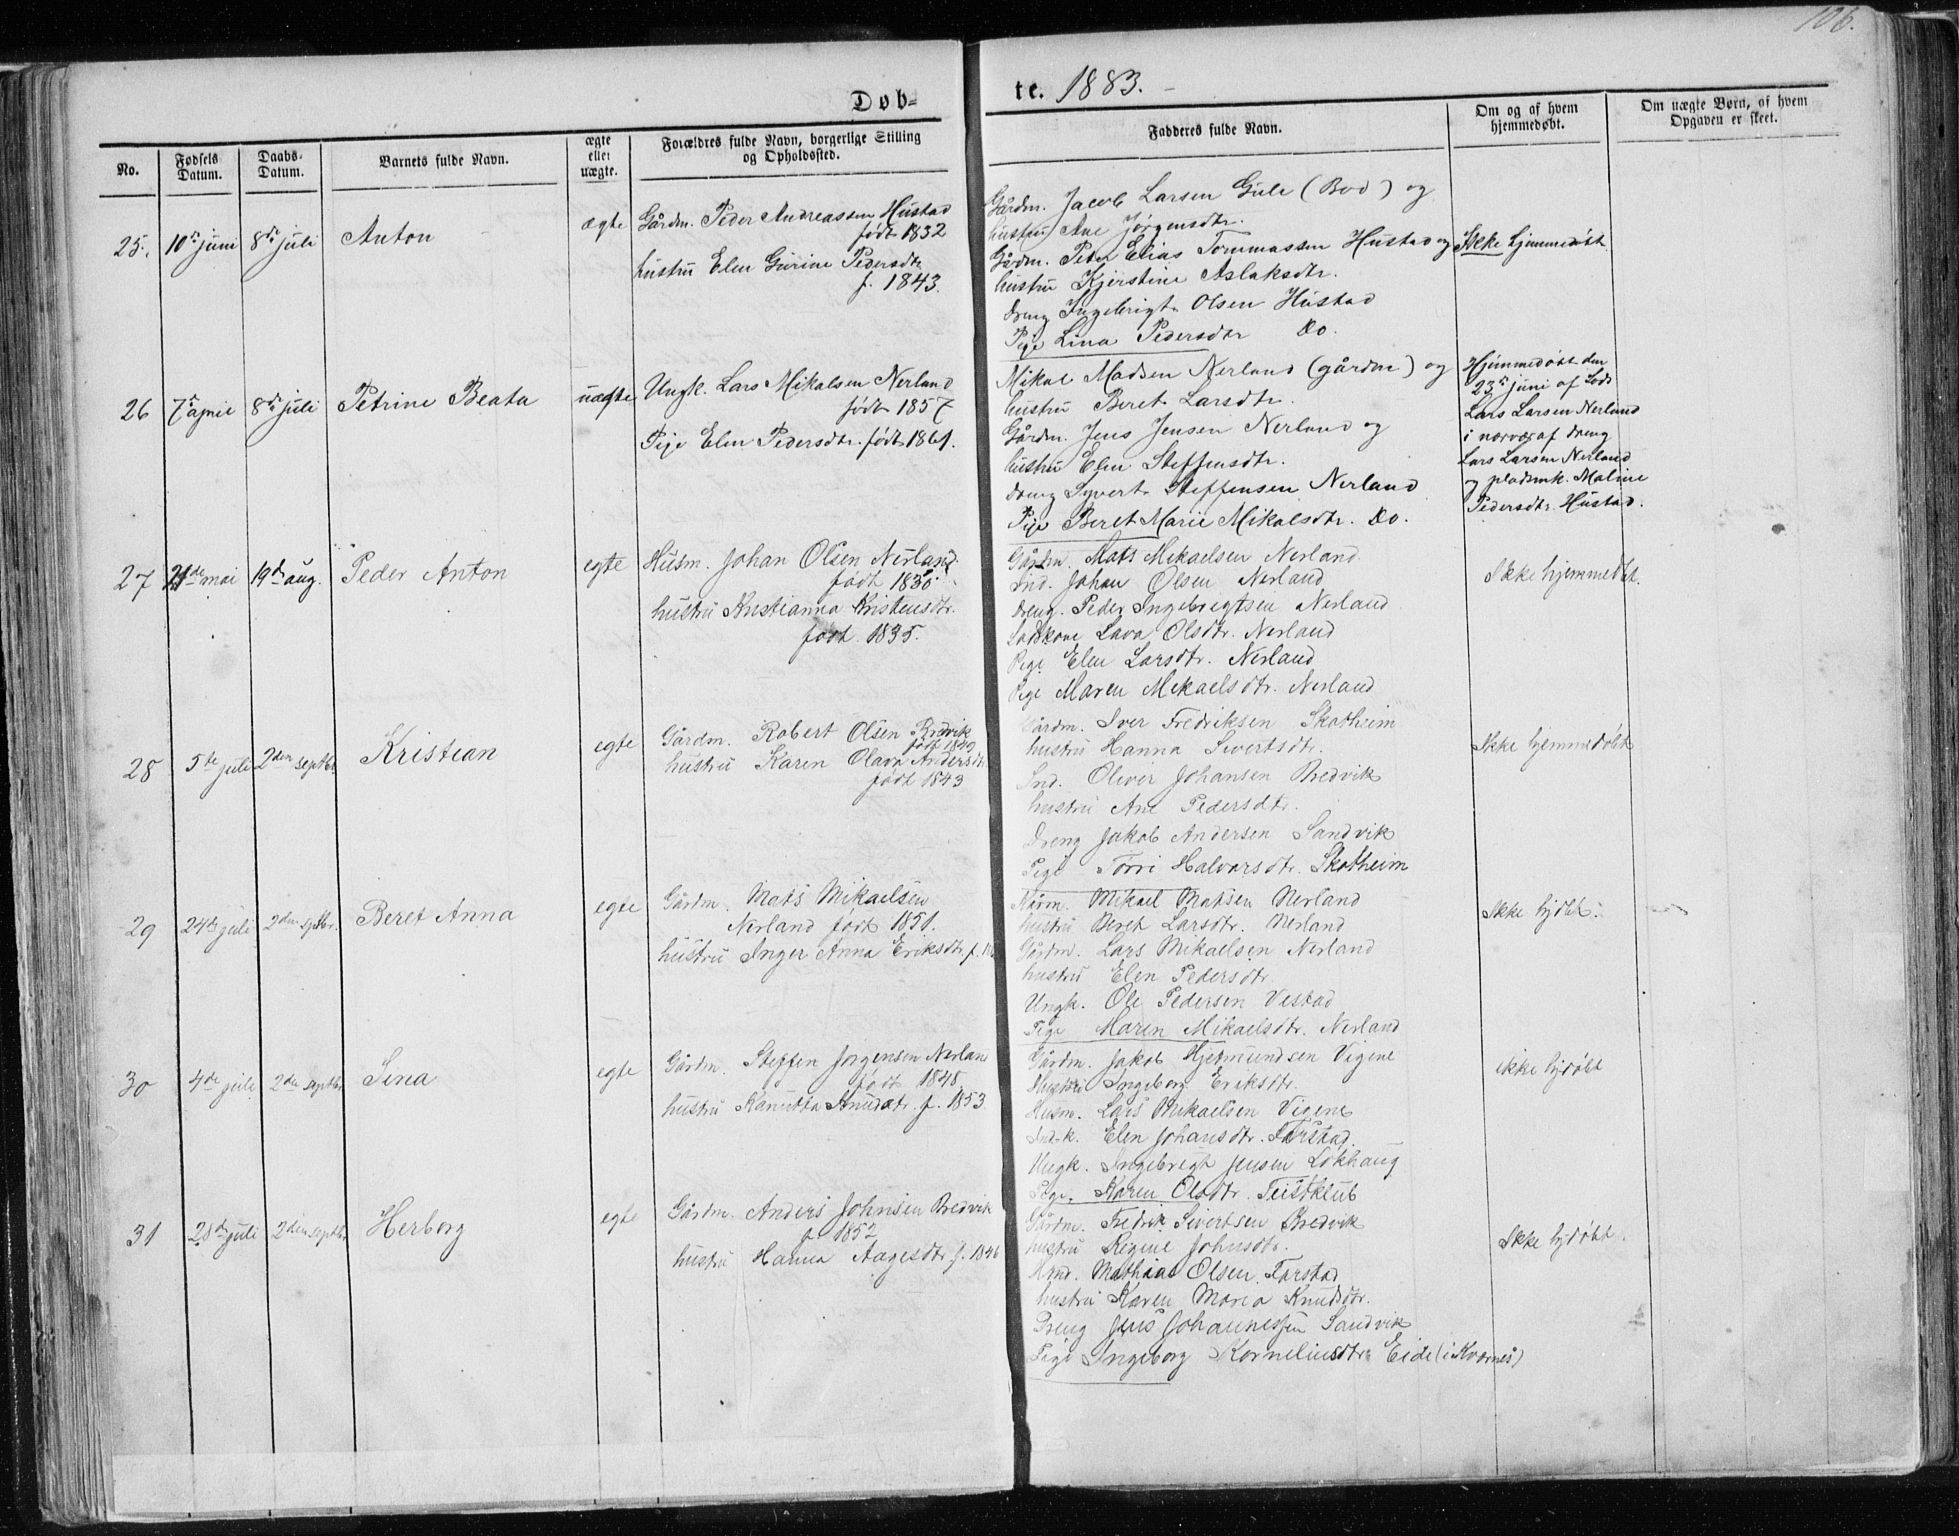 106.
Døb-
te. 1883.
No.
Fødsels Datum.
Daabs-Datum.
Barnets fulde Navn.
ægte eller uægte.
Forældres fulde Navn, borgerlige Stilling og Opholdssted.
Fadderes fulde Navn.
Om og af hvem hjemmedøbt.
Om uægte Børn, af hvem Opgaven er skeet.
25. 10de juni 8de juli Anton ægte
Gårdm. Peder Andreassen Hustad
født 1832
hustru Elen Gurine Pedersdtr.
f. 1843.
Gårdm. Jacob Larsen Gule (Bod) og
hustru Ane Jørgensdtr.
Gårdm. Peder Elias Tommassen Hustad og
hustru Kjerstine Aslaksdtr.
dreng Ingebrigt Olsen Hustad
Pige Lina Pedersdtr Do.
Ikke hjemmedøbt
26 7de april 8de juli Petrine Beata uægte
Ungk. Lars Mikalsen Nerland
født 1857
Pije Elen Pedersdtr. født 1861.
Mikal Madsen Nerland (gårdm) og
hustru Beret Larsdtr.
Gårdm. Jens Jensen Nerland og
hustru Elen Steffensdtr.
dreng Syvert Steffensen Nerland
Pije Beret Marie Mikalsdtr. Do.
Hjemmedøbt den
23de juni af Lods
Lars Larsen Nerland
i nærvær af dreng
Lars Larsen Nerland
og pladsmk. Maline
Pedersdtr. Hustad.
27 21de mai 19de aug. Peder Anton egte
Husm. Johan Olsen Nerland
født 1830.
hustru Kristianna Kristensdtr.
født 1835.
Gårdm. Mats Mikaelsen Nerland
Ind. Johan Olsen Nerland
dreng. Peder Ingebrigtsen Nerland
Ladskone Lava Olsdtr. Nerland
Pige Elen Larsdtr. Nerland
Pige Maren Mikaelsdtr. Nerland
Ikke hjemmedbt.
28 5te juli 2den septbr. Kristian egte
Gårdm. Robert Olsen Bredvik
født 1849
hustru Karen Olava Andersdtr
født 1843
Gårdm. Iver Fredriksen Skotheim
hustru Hanna Sivertsdtr.
Ind. Oliver Johansen Bredvik
hustru Ane Pedersdtr.
Dreng Jakob Andersen Sandvik
Pige Torri Halvorsdtr. Skotheim
Ikke hjemmedøbt
29 24de juli 2den sptbr. Beret Anna egte
Gårdm. Mats Mikaelsen
Nerland født 1851.
hustru Inger Anna Eriksdtr. f.
Kårm. Mikael Matsen Nerland
hustru Beret Larsdtr. Nerland
Gårdm. Lars Mikaelsen Nerland
hustru Elen Pedersdtr
Ungk. Ole Pedersen Vestad
Pige Maren Mikaelsdtr. Nerland
Ikke hjdbt.
30 4de juli 2den septbr. Sina egte
Gårdm. Steffen Jørgensen Nerlan
født 1848.
hustru Kanutta Knudsdtr. f. 1853
Gårdm. Jakob Hjetmundsen Vigene
Hustru Ingeborg Eriksdtr.
Husm. Lars Mikaelsen Vigene
Ind-k. Elen Johansdtr. Farstad.
Ungk. Ingebrigt Jensen Løkhaug
Pige. Karen Olsdtr. Teistklub
ikke hjdøbt
31 28de juli 2den septbr. Herborg egte
Gårdm. Anders Johnsen Bredvik
f. 1852
hustru Hanna Aagesdtr f. 1846
Gårdm. Fredrik Sivertsen Bredvik
hustru Regine Johnsdtr.
Ind. Mathias Olsen Farstad
hustru Karen Maria Knudsdtr.
Dreng Jens Johannessen Sandvik
Pige Ingeborg Korneliusdtr Eide (i Kvernes)
Ikke hjdøbt.